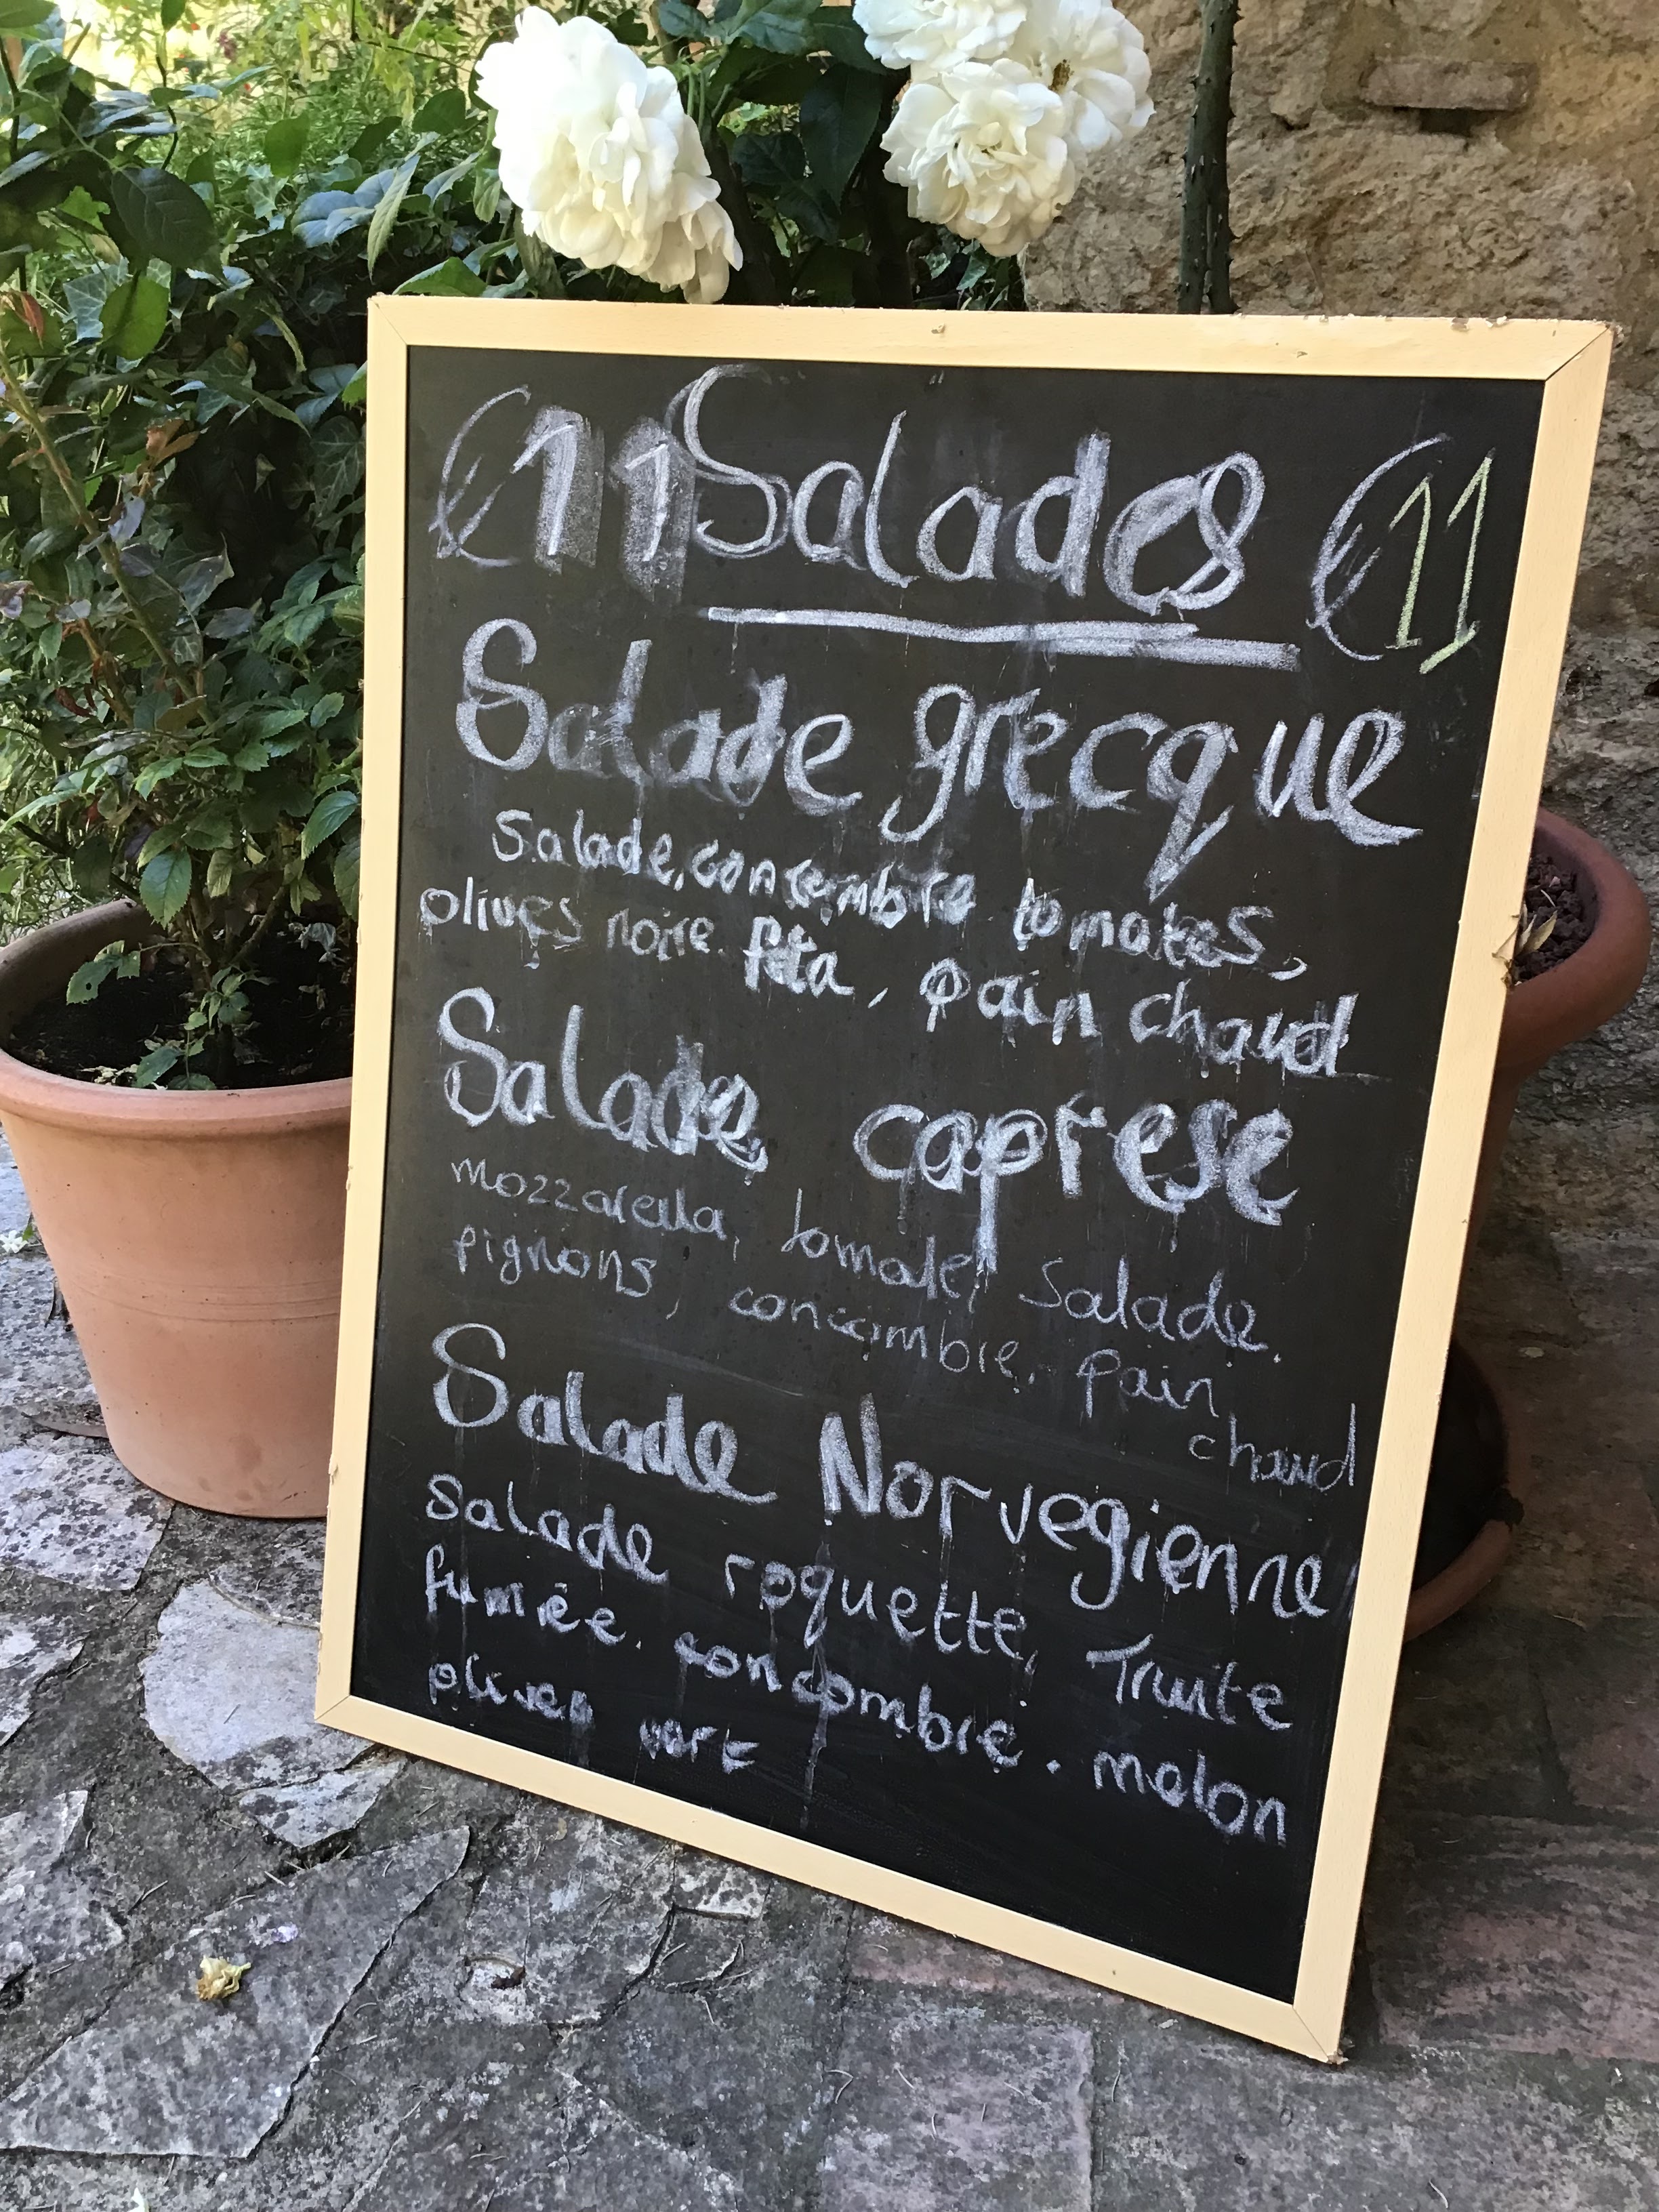 €11 Salades €11
Salade grecque
Salade, concombre tomates,
olives noire. feta, pain chaud
Salade caprese
mozzarella, tomate, Salade.
pignons, concombre. pain
chaud
Salade Norvegienne
Salade roquette, Truite
fumée. concombre. melon
olives vert